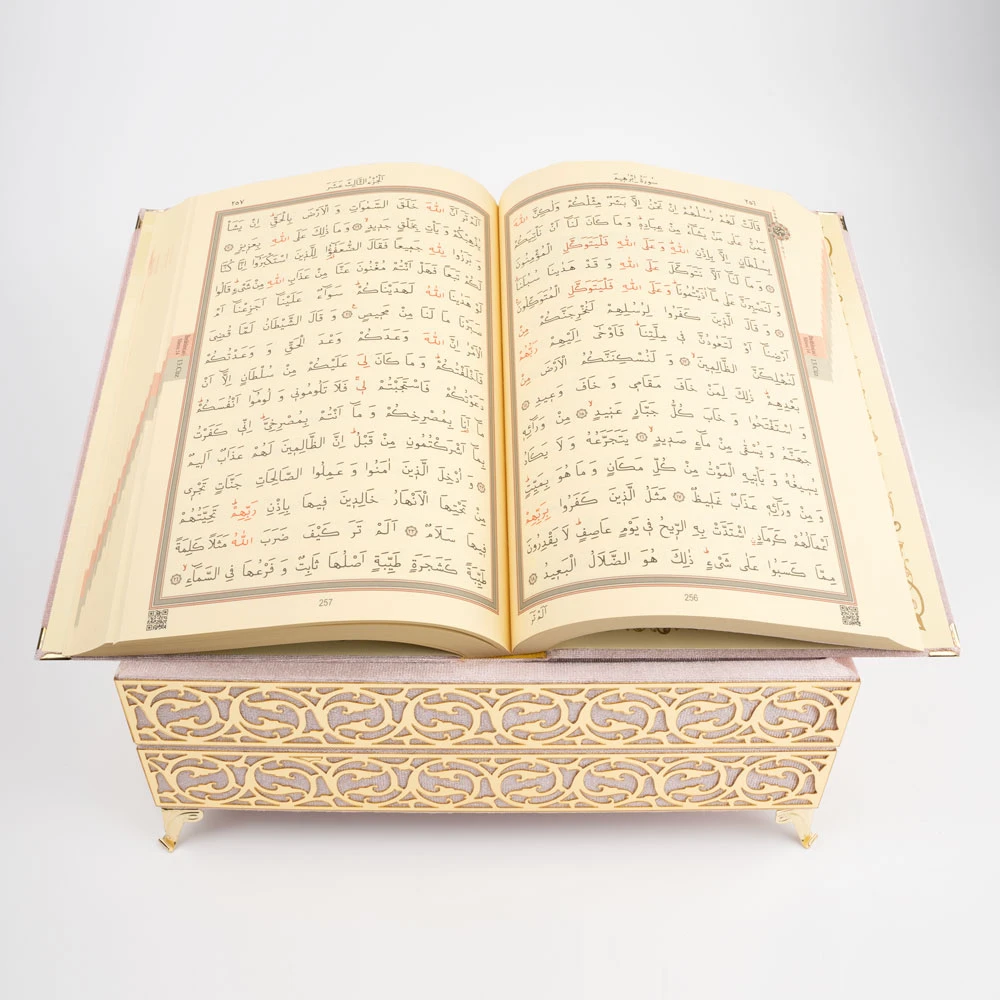 سُورَةُ اِبْرٰهِيمَ
٢٥٦
قَالَتْ لَهُمْ رُسُلُهُمْ اِنْ نَحْنُ اِلَّا بَشَرٌ مِثْلُكُمْ وَلٰكِنَّ اللّٰهَ
يَمُنُّ عَلٰى مَنْ يَشَٓاءُ مِنْ عِبَادِهٖۜ وَمَا كَانَ لَنَٓا اَنْ نَأْتِيَكُمْ
بِسُلْطَانٍ اِلَّا بِاِذْنِ اللّٰهِۜ وَعَلَى اللّٰهِ فَلْيَتَوَكَّلِ الْمُؤْمِنُونَ
وَمَا لَنَٓا اَلَّا نَتَوَكَّلَ عَلَى اللّٰهِ وَقَدْ هَدٰينَا سُبُلَنَاۜ
وَلَنَصْبِرَنَّ عَلٰى مَٓا اٰذَيْتُمُونَاۜ وَعَلَى اللّٰهِ فَلْيَتَوَكَّلِ الْمُتَوَكِّلُونَ
وَقَالَ الَّذٖينَ كَفَرُوا لِرُسُلِهِمْ لَنُخْرِجَنَّكُمْ مِنْ
اَرْضِنَٓا اَوْ لَتَعُودُنَّ فٖي مِلَّتِنَاۜ فَاَوْحٰٓى اِلَيْهِمْ رَبُّهُمْ
لَنُهْلِكَنَّ الظَّالِمٖينَۙ وَلَنُسْكِنَنَّكُمُ الْاَرْضَ مِنْ
بَعْدِهِمْۜ ذٰلِكَ لِمَنْ خَافَ مَقَامٖي وَخَافَ وَعٖيدِ
وَاسْتَفْتَحُوا وَخَابَ كُلُّ جَبَّارٍ عَنٖيدٍۙ مِنْ وَرَٓائِهٖ
جَهَنَّمُ وَيُسْقٰى مِنْ مَٓاءٍ صَدٖيدٍۙ يَتَجَرَّعُهُ وَلَا يَكَادُ
يُسٖيغُهُ وَيَأْتٖيهِ الْمَوْتُ مِنْ كُلِّ مَكَانٍ وَمَا هُوَ بِمَيِّتٍۜ
وَمِنْ وَرَٓائِهٖ عَذَابٌ غَلٖيظٌ مَثَلُ الَّذٖينَ كَفَرُوا بِرَبِّهِمْ
اَعْمَالُهُمْ كَرَمَادٍۨ اشْتَدَّتْ بِهِ الرّٖيحُ فٖي يَوْمٍ عَاصِفٍۜ لَا يَقْدِرُونَ
مِمَّا كَسَبُوا عَلٰى شَيْءٍۜ ذٰلِكَ هُوَ الضَّلَالُ الْبَعٖيدُ
اَلَمْ تَرَ
256
اَلْجُزْءُ الثَّالِثَ عَشَرَ
٢٥٧
اَلَمْ تَرَ اَنَّ اللّٰهَ خَلَقَ السَّمٰوَاتِ وَالْاَرْضَ بِالْحَقِّۜ اِنْ يَشَأْ
يُذْهِبْكُمْ وَيَأْتِ بِخَلْقٍ جَدٖيدٍۙ وَمَا ذٰلِكَ عَلَى اللّٰهِ بِعَزٖيزٍ
وَبَرَزُوا لِلّٰهِ جَمٖيعًا فَقَالَ الضُّعَفٰٓؤُا لِلَّذٖينَ اسْتَكْبَرُٓوا اِنَّا كُنَّا
لَكُمْ تَبَعًا فَهَلْ اَنْتُمْ مُغْنُونَ عَنَّا مِنْ عَذَابِ اللّٰهِ مِنْ شَيْءٍۜ قَالُوا
لَوْ هَدٰينَا اللّٰهُ لَهَدَيْنَاكُمْۜ سَوَٓاءٌ عَلَيْنَٓا اَجَزِعْنَٓا اَمْ
صَبَرْنَا مَا لَنَا مِنْ مَحٖيصٍ وَقَالَ الشَّيْطَانُ لَمَّا قُضِيَ
الْاَمْرُ اِنَّ اللّٰهَ وَعَدَكُمْ وَعْدَ الْحَقِّ وَوَعَدْتُكُمْ
فَاَخْلَفْتُكُمْۜ وَمَا كَانَ لِيَ عَلَيْكُمْ مِنْ سُلْطَانٍ اِلَّٓا اَنْ
دَعَوْتُكُمْ فَاسْتَجَبْتُمْ لٖيۚ فَلَا تَلُومُونٖي وَلُومُٓوا اَنْفُسَكُمْۜ
مَٓا اَنَا۬ بِمُصْرِخِكُمْ وَمَٓا اَنْتُمْ بِمُصْرِخِيَّۜ اِنّٖي كَفَرْتُ
بِمَٓا اَشْرَكْتُمُونِ مِنْ قَبْلُۜ اِنَّ الظَّالِمٖينَ لَهُمْ عَذَابٌ اَلٖيمٌ
وَاُدْخِلَ الَّذٖينَ اٰمَنُوا وَعَمِلُوا الصَّالِحَاتِ جَنَّاتٍ تَجْرٖي
مِنْ تَحْتِهَا الْاَنْهَارُ خَالِدٖينَ فٖيهَا بِاِذْنِ رَبِّهِمْۜ تَحِيَّتُهُمْ
فٖيهَا سَلَامٌ اَلَمْ تَرَ كَيْفَ ضَرَبَ اللّٰهُ مَثَلًا كَلِمَةً
طَيِّبَةً كَشَجَرَةٍ طَيِّبَةٍ اَصْلُهَا ثَابِتٌ وَفَرْعُهَا فِي السَّمَٓاءِۙ
257